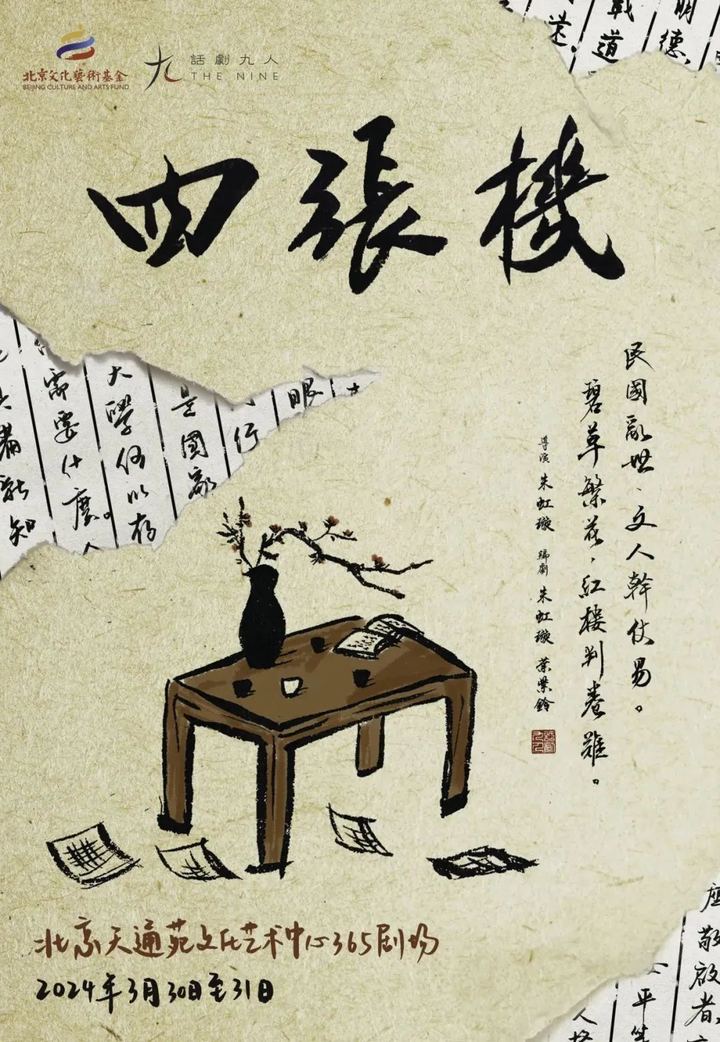 北京文化藝術基金
BEIJING CULTURE AND ARTS FUND
九
話劇九人
THE NINE
四張機
民國亂世、文人幹仗易。
碧草繁花，紅樓判卷難。
導演 朱虹璇 編劇 朱虹璇 葉紫鈴
明德
戰道
需要什麼。
大學何以存
是國家
行
眼
能知
北京天通苑文化艺术中心365剧场
2024年3月30日至31日
敬啟者，
平等
人格